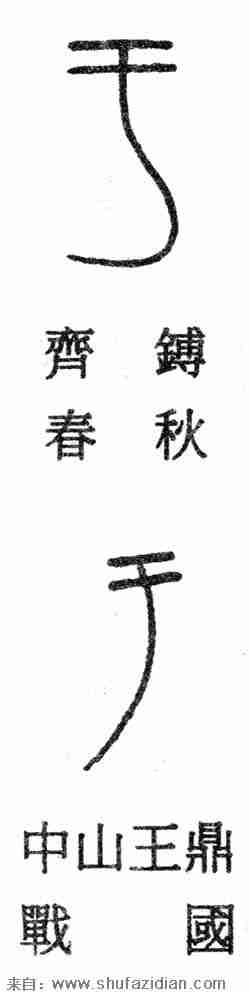 于
齊鎛
春秋
于
中山王鼎
戰國
来自：www.shufazidian.com